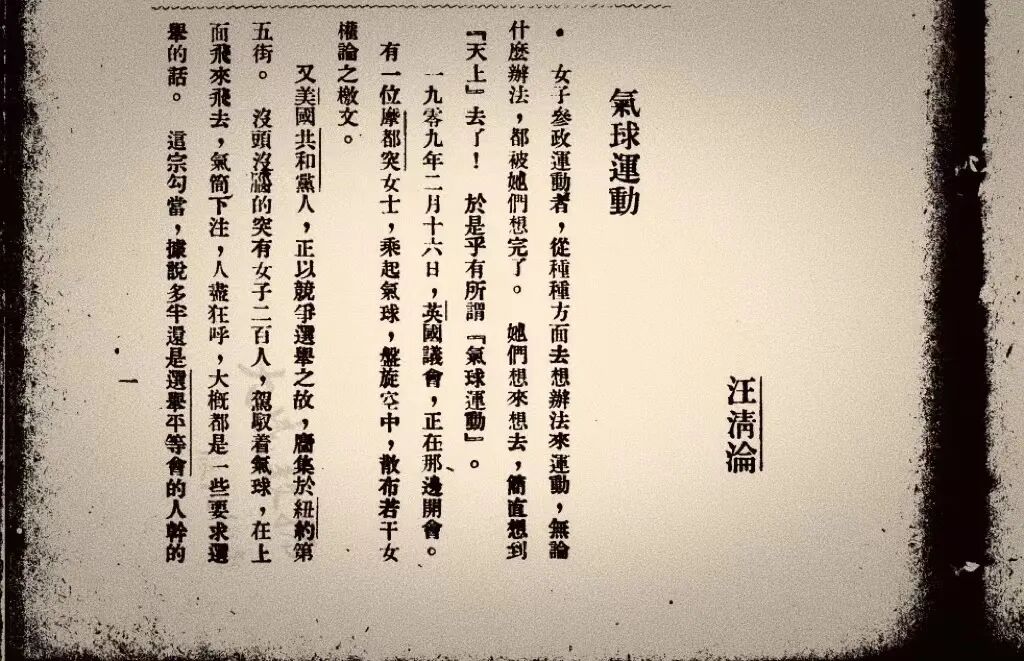 汪淸淪
氣球運動
• 女子參政運動者，從種種方面去想辦法來運動，無論
什麼辦法，都被她們想完了。 她們想來想去，簡直想到
『天上』去了！ 於是乎有所謂『氣球運動』。
一九零九年二月十六日，英國議會，正在那邊開會。
有一位摩都突女士，乘起氣球，盤旋空中，散布若干女
權論之檄文。
又美國共和黨人，正以競爭選舉之故，麕集於紐約第
五街。 沒頭沒腦的突有女子二百人，駕馭着氣球，在上
面飛來飛去，氣筒下注，人盡狂呼，大槪都是一些要求選
舉的話。 這宗勾當，據說多半還是選舉平等會的人幹的
一